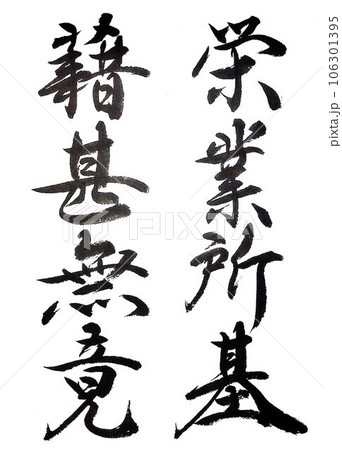 栄業所基
籍甚無竟
PIXTA
pixta.jp - 106301395